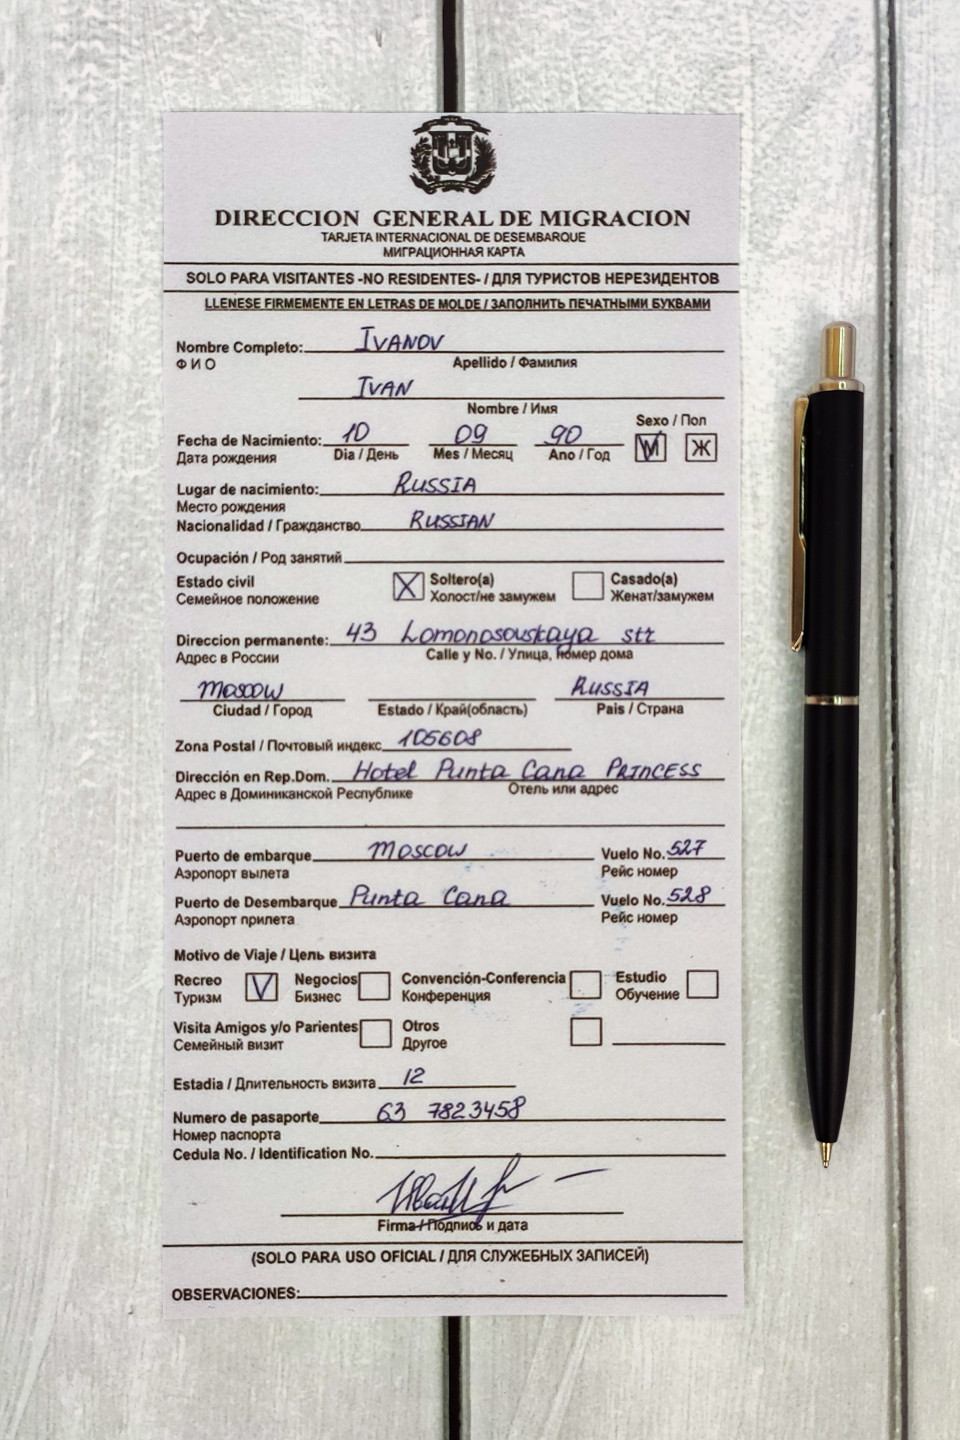 DIRECCION GENERAL DE MIGRACION
TARJETA INTERNACIONAL DE DESEMBARQUE
МИГРАЦИОННАЯ КАРТА
SOLO PARA VISITANTES -NO RESIDENTES- / ДЛЯ ТУРИСТОВ НЕРЕЗИДЕНТОВ
LLENESE FIRMEMENTE EN LETRAS DE MOLDE / ЗАПОЛНИТЬ ПЕЧАТНЫМИ БУКВАМИ
Nombre Completo: IVANOV
Ф И О Apellido / Фамилия
IVAN
Nombre / Имя
Sexo / Пол
Fecha de Nacimiento: 10 09 90 М Ж
Дата рождения Dia / День Mes / Месяц Ano / Год
Lugar de nacimiento: RUSSIA
Место рождения
Nacionalidad / Гражданство RUSSIAN
Ocupación / Род занятий
Estado civil X Soltero(a) Casado(a)
Семейное положение Холост/не замужем Женат/замужем
Direccion permanente: 43 Lomonosovskaya str
Адрес в России Calle y No. / Улица, номер дома
Moscow RUSSIA
Ciudad / Город Estado / Край(область) Pais / Страна
Zona Postal / Почтовый индекс 105608
Dirección en Rep.Dom. Hotel Punta Cana PRINCESS
Адрес в Доминиканской Республике Отель или адрес
Puerto de embarque MOSCOW Vuelo No. 527
Аэропорт вылета Рейс номер
Puerto de Desembarque Punta Cana Vuelo No. 528
Аэропорт прилета Рейс номер
Motivo de Viaje / Цель визита
Recreo V Negocios Convención-Conferencia Estudio
Туризм Бизнес Конференция Обучение
Visita Amigos y/o Parientes Otros
Семейный визит Другое
Estadia / Длительность визита 12
Numero de pasaporte 63 7823458
Номер паспорта
Cedula No. / Identification No.
Firma / Подпись и дата
(SOLO PARA USO OFICIAL / ДЛЯ СЛУЖЕБНЫХ ЗАПИСЕЙ)
OBSERVACIONES: